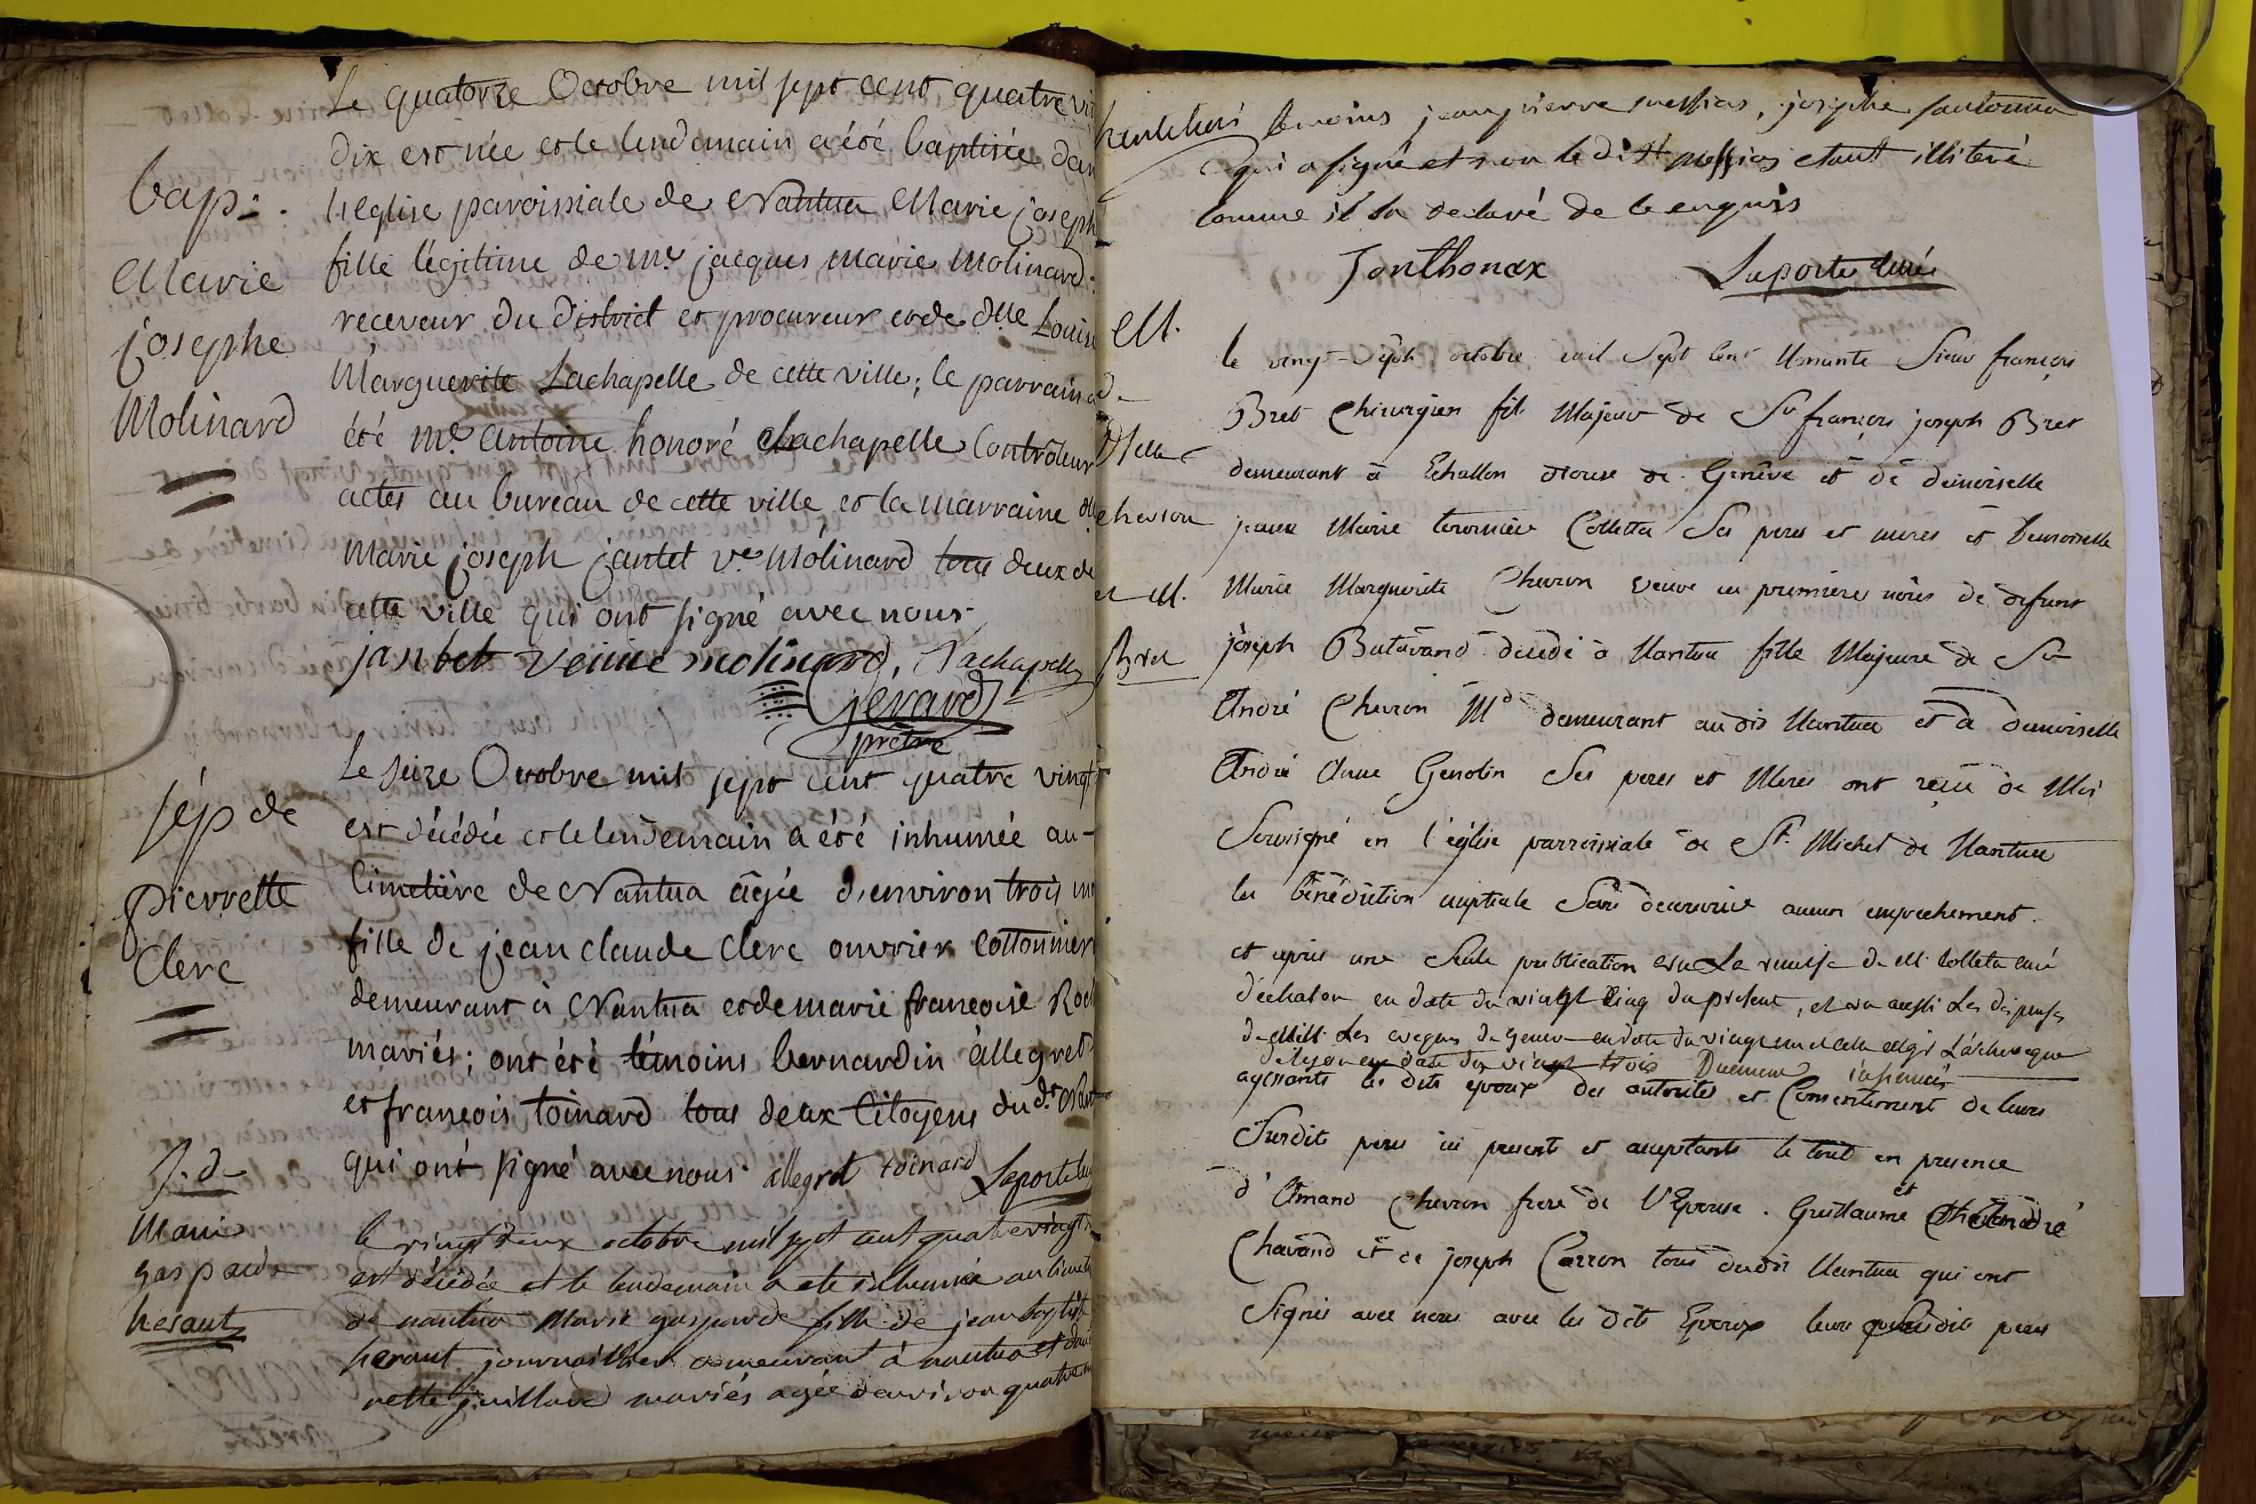 Le quatorze Octobre mil sept cent quatre vi
bap:.
dix est née et le lendemain a été baptisée dan
l'eglise paroissiale de Nantua Marie joseph
Marie
josephe
Molinard
fille légitime de mr. jacques marie Molinard
receveur du district et procureur et de dlle Louise
Marguerite Lachapelle de cette ville; le parrain a
été mr. antoine honoré Lachapelle Controleur
actes au bureau de cette ville et la marraine dlle
Marie joseph jantet ve. Molinard tous deux de
cette ville qui ont signé avec nous
jantet veuve molinard, Lachapelle
Gerard
prêtre
sép de
pierrette
Clerc
Le seize Octobre mil sept cent quatre vingt
est décédée et le lendemain a été inhumée au
Cimetière de Nantua âgée d'environ trois
fille de jean claude Clerc ouvrier Cottonnier
demeurant à Nantua et de marie françoise
mariés; ont été témoins bernardin allegret
et françois toinard tous deux Citoyens du dt.
qui ont signé avec nous allegret toinard Laporte
S. de
Marie
gasparde
heraut
le vingt deux octobre mil sept cent quatre vingt
est décédée et le lendemain a ete inhumée au
de nantua Marie gasparde fille de jean baptiste
heraut journaillier demeurant à nantua et
juillard mariés agée d'environ quatre
temoins jean pierre messias, josephe
qui a signé et non le dit messias etant illiteré
comme il la declaré de ce enquis
Jonthonax Laporte curé
M.
Bret
et M.
Dlle
chevron
le vingt-sept octobre mil sept cent nonante Sieur françois
Bret Chirurgien fils Majeur de Sr françois joseph Bret
demeurant à Echallon diocese de Genêve et de demoiselle
jeanne Marie Colletta Ses peres et meres et demoiselle
Marie Marguerite Chevron veuve en premieres nôces de défunt
joseph Butavand décédé à Nantua fille Majeure de Sr
André Chevron Md demeurant au dit Nantua et de demoiselle
André Anne Genolin Ses peres et Meres ont reçu de Moi
Soussigné en l'église parroissiale de St. Michel de Nantua
la bénédiction nuptiale Sans decouvrir aucun empechement
et après une Seule publication vu La remise de M. Colleta curé
d'echalon en date du vingt cinq du présent, et vu aussi Les dispenses
de Les eveques de Geneve en date du vingt un et celle Mgr L'archeveque
de Lyon en date du vingt trois Duement insinuées
agissants les dits epoux des autorités et Consentement de leurs
Susdits peres ici presents et acceptants le tout en presence
d'Amand Chevron frere de l'Epouse. Guillaume et
Chavand et de joseph Carron tous dudit Nantua qui ont
Signés avec nous avec les dits Epoux leurs Susdits peres